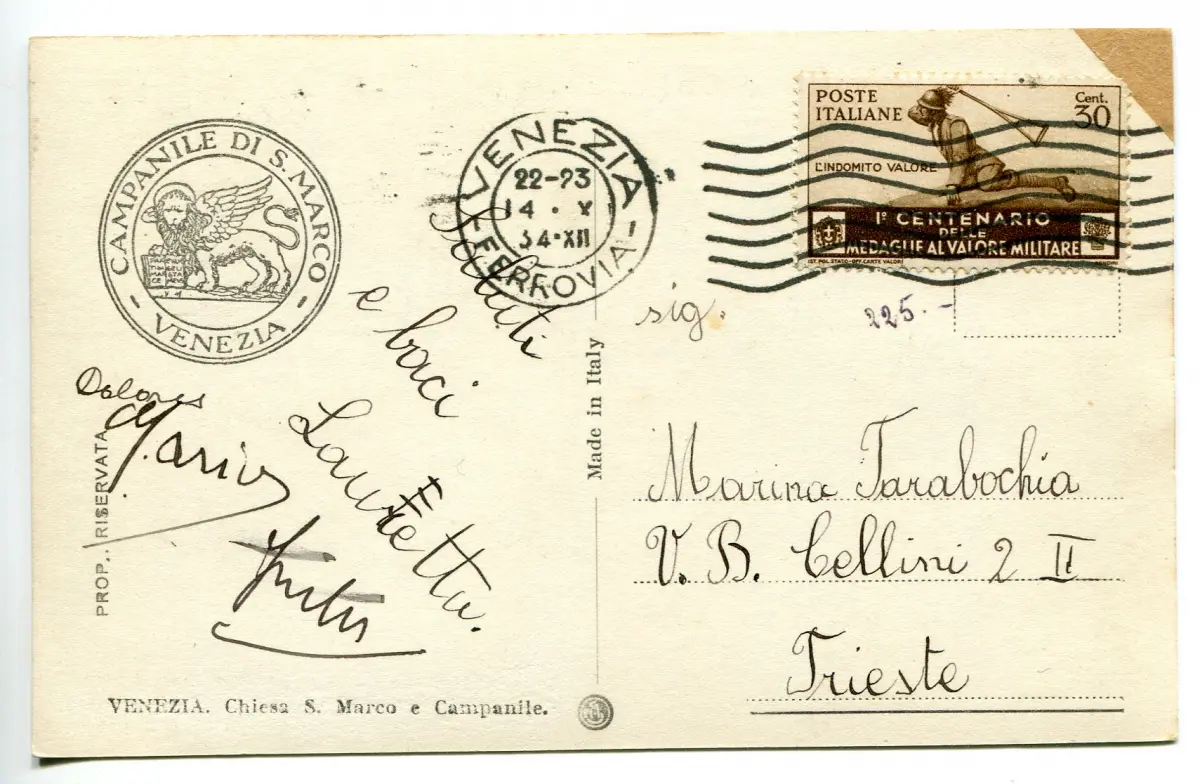 CAMPANILE DI S. MARCO
- VENEZIA -
VENEZIA
22-23
14 · X
34·XII
- FERROVIA -
POSTE
ITALIANE
Cent.
30
L'INDOMITO VALORE
I° CENTENARIO
DELLE
MEDAGLIE AL VALORE MILITARE
IST. POL. STATO-OFF. CARTE VALORI
Saluti
e baci
Lauretta.
Dolores
Made in Italy
PROP. RISERVATA
sig.
225.-
Marina Tarabochia
V. B. Cellini 2 II
Trieste
VENEZIA. Chiesa S. Marco e Campanile.